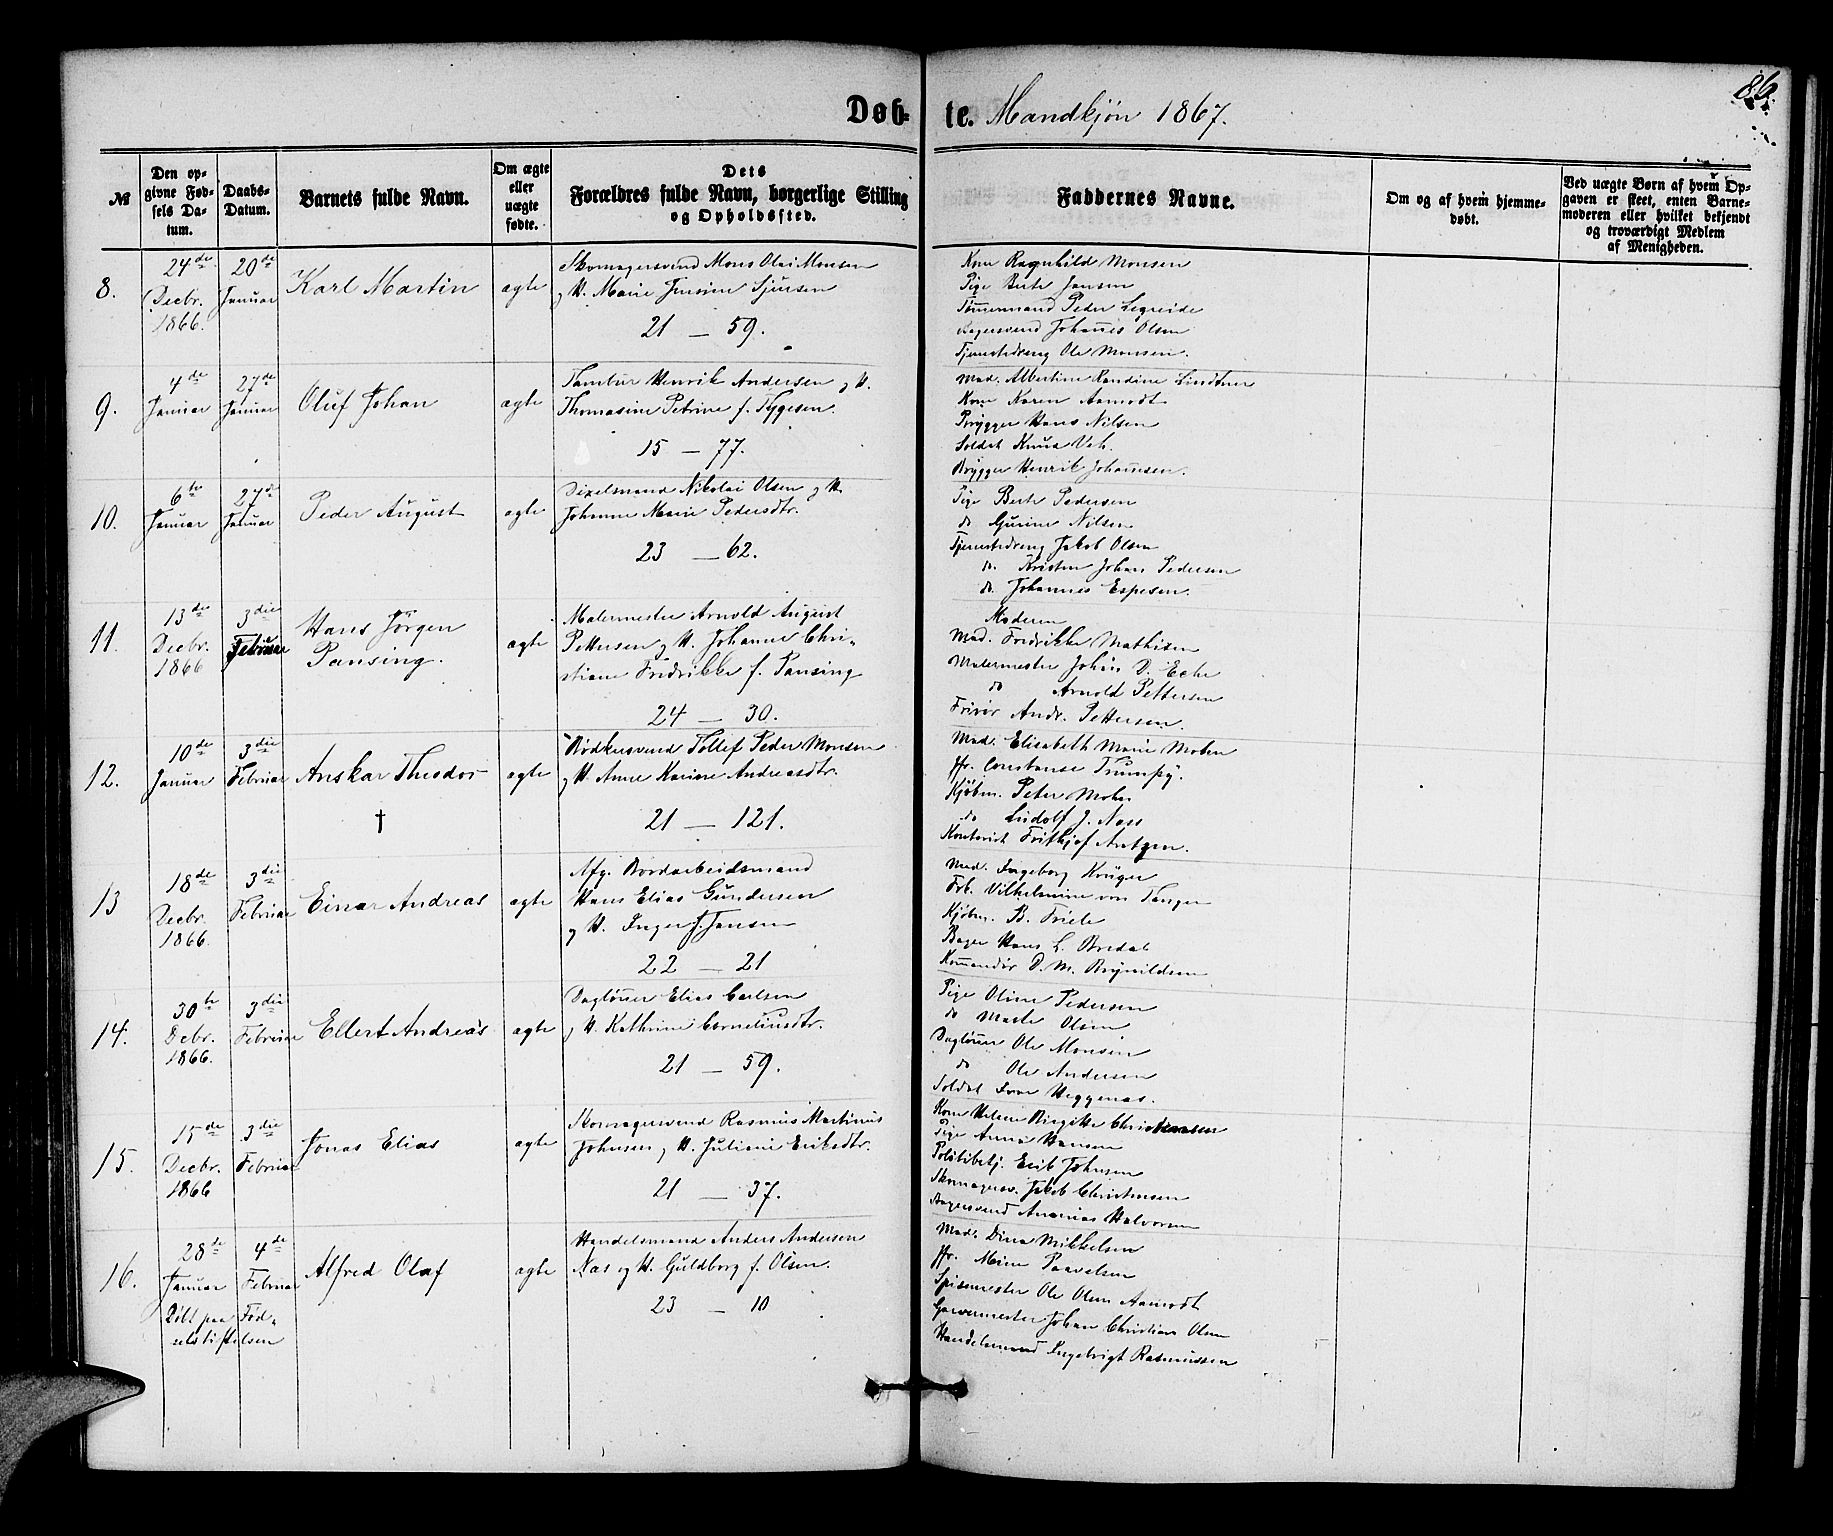 Døb- te. Mandkjøn 1867.
86.
№
Den opgivne Fødsels Datum.
Daabs-Datum.
Barnets fulde Navn.
Om ægte eller uægte fødte.
Dets Forældres fulde Navn, borgerlige Stilling og Opholdssted.
Faddernes Navne.
Om og af hvem hjemmedøbt.
Ved uægte Børn af hvem Opgaven er skeet, enten Barnemoderen eller hvilket bekjendt og troværdigt Medlem af Menigheden.
8.
24de Decbr. 1866.
20de Januar
Karl Martin
ægte
Skomagersvend Mons Olai Monsen
og H. Marie Jensine Sjursen
21 — 59.
Kone Ragnhild Monsen
Pige Berte Jansen
Tømmermand Peder Legreide
Bagersvend Johanes Olsen
Tjenestedreng Ole Monsen.
9.
4de Januar
27de Januar
Oluf Johan
ægte
Tambur Henrik Andersen og H.
Thomasine Petrine f. Tygesen.
15 — 77.
Mad. Albertine Randine Lindtner
Kone Karen Aamodt
Brygger Hans Nilsen
Soldat Knud
Brygger Henrik Johannesen.
10.
6te Januar
27de Januar
Peder August
ægte
Nikolai Olsen og H.
Johanne Marie Pedersdtr.
23 — 62.
Pige Berte Pedersen
do Gurine Nilsen
Tjenestedreng Jakob Olsen
do. Kristen Johan Pedersen
do. Johannes Espesen.
11.
13de Decbr. 1866
3die Februar
Hans Jörgen
Pansing.
ægte
Malermester Arnold August
Pettersen og H. Johanne Chri-
stiane Fredrikke f. Pansing
24 — 30.
Moderen
Mad. Fredrikke Mathisen
Malermester Johan D.
do Arnold Pettersen
Frisör Andr. Pettersen.
12.
10de Januar
3die Februar
Anskar Theodor
†
ægte
Bødkersvend Tollef Peder Monsen
og H. Anne Karine Andreasdtr.
21 — 121.
Mad. Elisabeth Marie Mohn
Jfr. Constanse Trumpy.
Kjøbm. Peter Mohn
do Ludolf J. Næss
Kontorist Frithjof Antzen.
13
18de Decbr. 1866.
3die Februar
Einar Andreas
ægte
Afg. Bordarbeidsmand
Hans Elias Gundersen
og H. Inger J. Jansen
22 — 21
Mad. Ingeborg Krüger
Frk. Vilhelmine von Tangen
Kjøbm. B. Friele
Bager Hans L. Bredal
Komandör D. M. Brynildsen
14.
30te Decbr. 1866.
3die Februar
Ellert Andreas
ægte
Daglöner Elias Carlsen
og H. Kathrine Corneliusdtr.
21 — 59.
Pige Oline Pedersen
do Marte Olsen
Daglöner Ole Monsen
do Ole Andersen
Soldat Iver Heggenæs.
15.
15de Decbr. 1866
3die Februar
Jonas Elias
ægte
Skomagersvend Rasmus Martinus
Johnsen og H. Juliane Eriksdtr.
21 — 37.
Kone Helene Birgitte Christensen
Pige Anna Hansen
Politibetj. Erik Johnsen
Skomagersv. Jakob Christensen
Bagersvend Ananias Halvorsen
16.
28de Januar
4de Februar
Döbt paa Fød-
selsstiftelsen
Alfred Olaf
ægte
Handelsmand Anders Andersen
Næs og H. Guldborg f. Olsen.
23 — 10
Mad. Dina Mikkelsen
Jfr. Mine Paavelsen
Spisemester Ole Olsen Aamodt
Garvermester Johan Christian Olsen
Handelsmand Ingebrigt Rasmussen